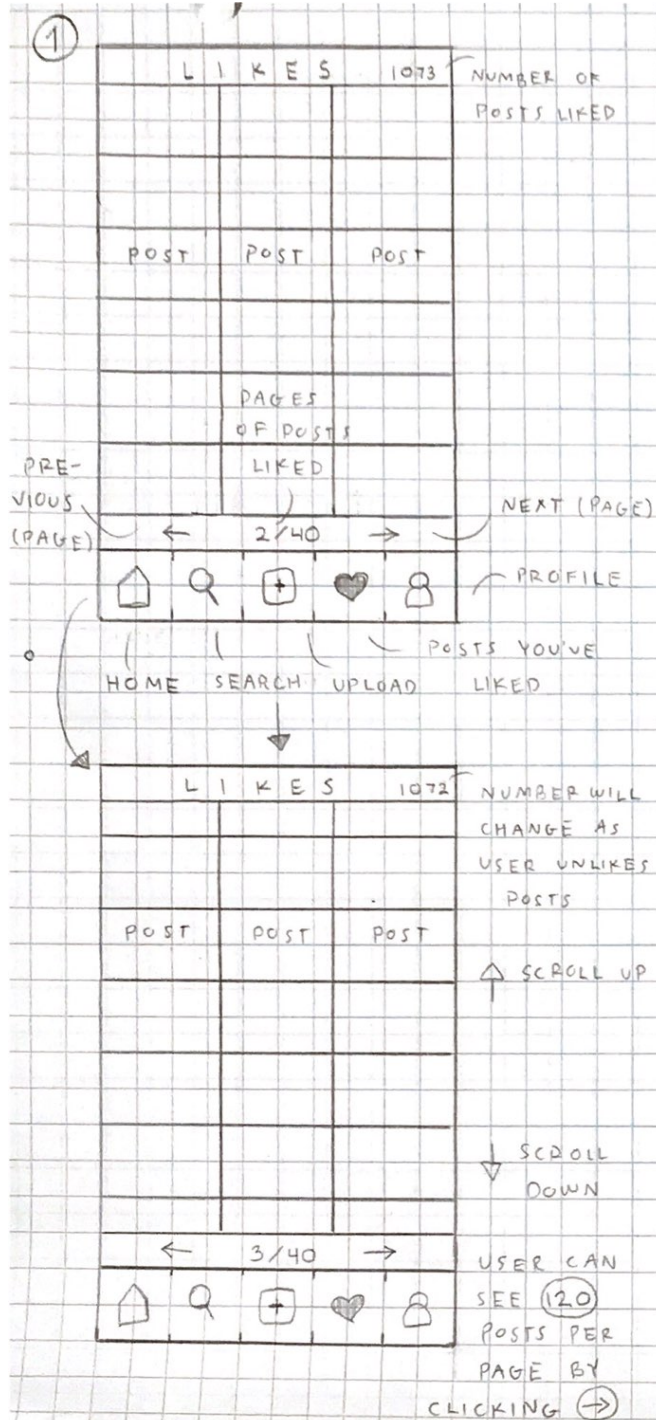 1
LIKES 1073
NUMBER OF
POSTS LIKED
POST POST POST
PAGES
OF POSTS
LIKED
PRE-
VIOUS
(PAGE)
← 2/40 →
NEXT (PAGE)
+
PROFILE
POSTS YOU'VE
LIKED
HOME SEARCH UPLOAD
LIKES 1072
NUMBER WILL
CHANGE AS
USER UNLIKES
POSTS
POST POST POST
SCROLL UP
SCROLL
DOWN
← 3/40 →
+
USER CAN
SEE 120
POSTS PER
PAGE BY
CLICKING →